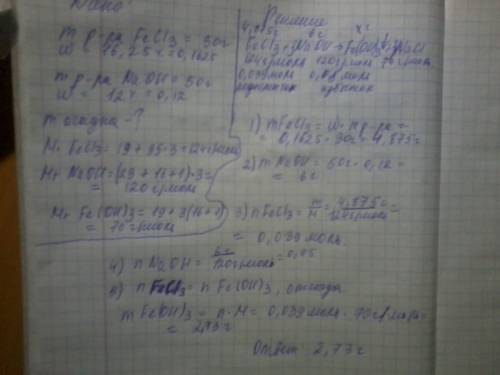 Дано
m р-ра FeCl₃ = 30г
W = 16,25% = 0,1625
m р-ра NaOH = 50г
W = 12% = 0,12
m осадка - ?
Mr FeCl₃ = 19 + 35·3 = 124г/моль
Mr NaOH = (23 + 16+1)·3 =
= 120г/моль
Mr Fe(OH)₃ = 19 + 3(16+1)
= 70г/моль
Решение
4,875г 6г xг
FeCl₃+3NaOH → Fe(OH)₃↓+3NaCl
124г/моль 120г/моль 70г/моль
0,039моль 0,05моль
недостаток избыток
1) mFeCl₃ = W · mр-ра =
= 0,1625 · 30г = 4,875г
2) m NaOH = 50г · 0,12 =
= 6г
3) n FeCl₃ = m/M = 4,875г/124г/моль =
= 0,039 моль
4) n NaOH = 6г/120г/моль = 0,05
5) n FeCl₃ = n Fe(OH)₃, отсюда
mFe(OH)₃ = n·M = 0,039моль · 70г/моль =
= 2,73г
Ответ: 2,73г